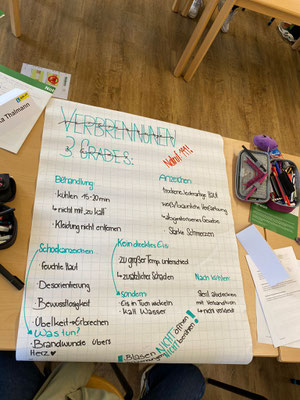 VERBRENNUNEN
3 GRADES:
Notruf!!!
Behandlung:
· kühlen ~15-20min
↳ nicht mit zu kalt
· Kleidung nicht entfernen
Anzeichen:
· trockene lederartige Haut
· weiß/bräunliche Verfärbung
· abgestorbenes Gewebe
· Starke Schmerzen
Schockanzeichen:
· feuchte Haut
· Desorientierung
· Bewusstlosigkeit
· Übelkeit → Erbrechen
Was tun?
· Brandwunde übers
Herz ♥
Kein direktes Eis:
· zu großer Temp. unterschied
↳ zusätzlicher Schaden
sondern:
· Eis in Tuch wickeln
· kalt Wasser
Nach kühlen:
· Steril abdecken
mit Verbandtuch
↳ nicht verklebt
! Blasen
NICHT öffnen
nicht berühren!
Thalmann